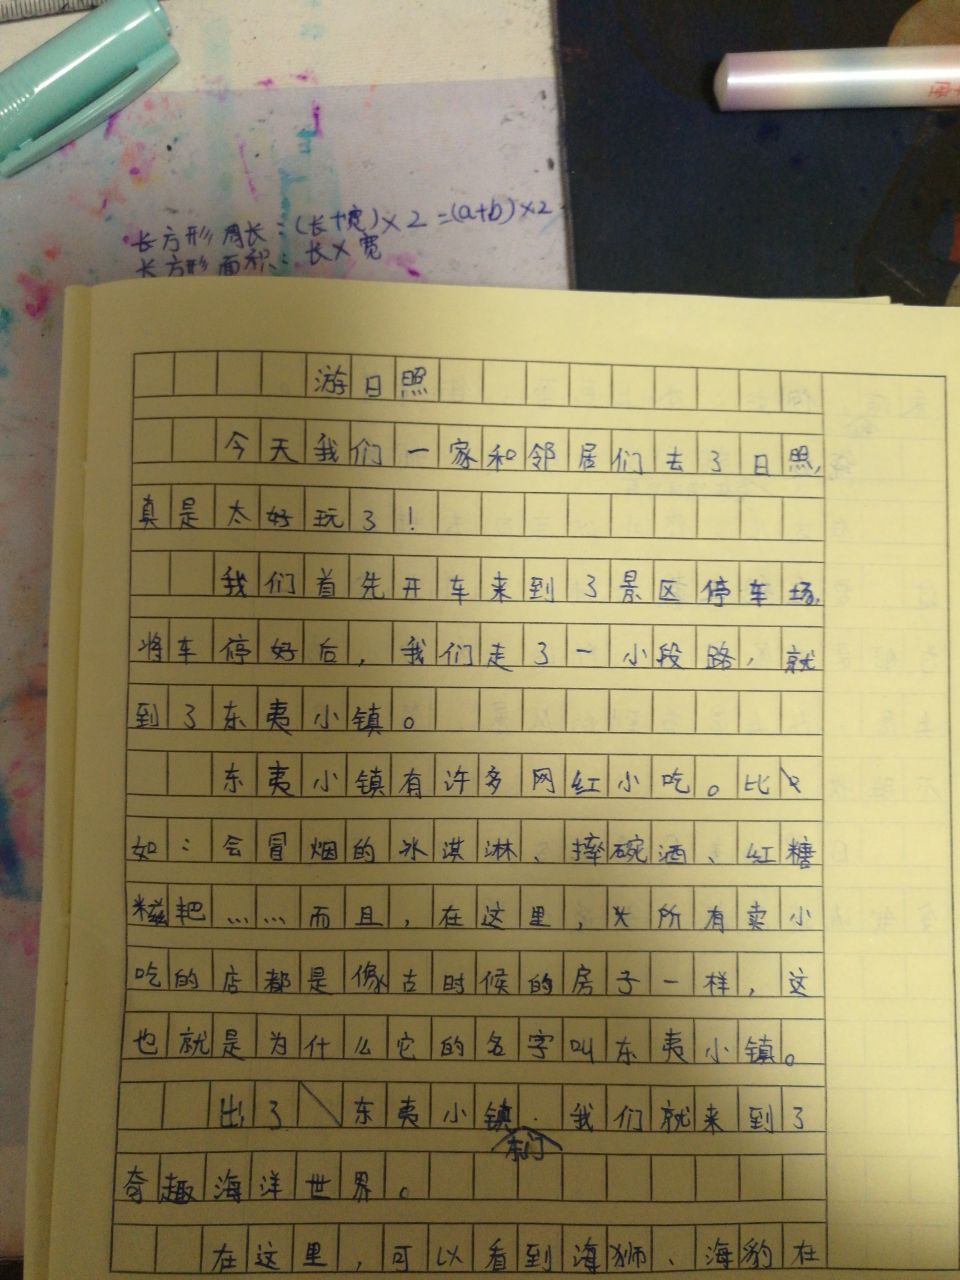 长方形周长：(长+宽)×2=(a+b)×2
长方形面积：长×宽
游日照
今天我们一家和邻居们去了日照，
真是太好玩了！
我们首先开车来到了景区停车场，
将车停好后，我们走了一小段路，就
到了东夷小镇。
东夷小镇有许多网红小吃。比
如：会冒烟的冰淇淋、摔碗酒、红糖
糍粑……而且，在这里，所有卖小
吃的店都是像古时候的房子一样，这
也就是为什么它的名字叫东夷小镇。
出了东夷小镇东门，我们就来到了
奇趣海洋世界。
在这里，可以看到海狮、海豹在